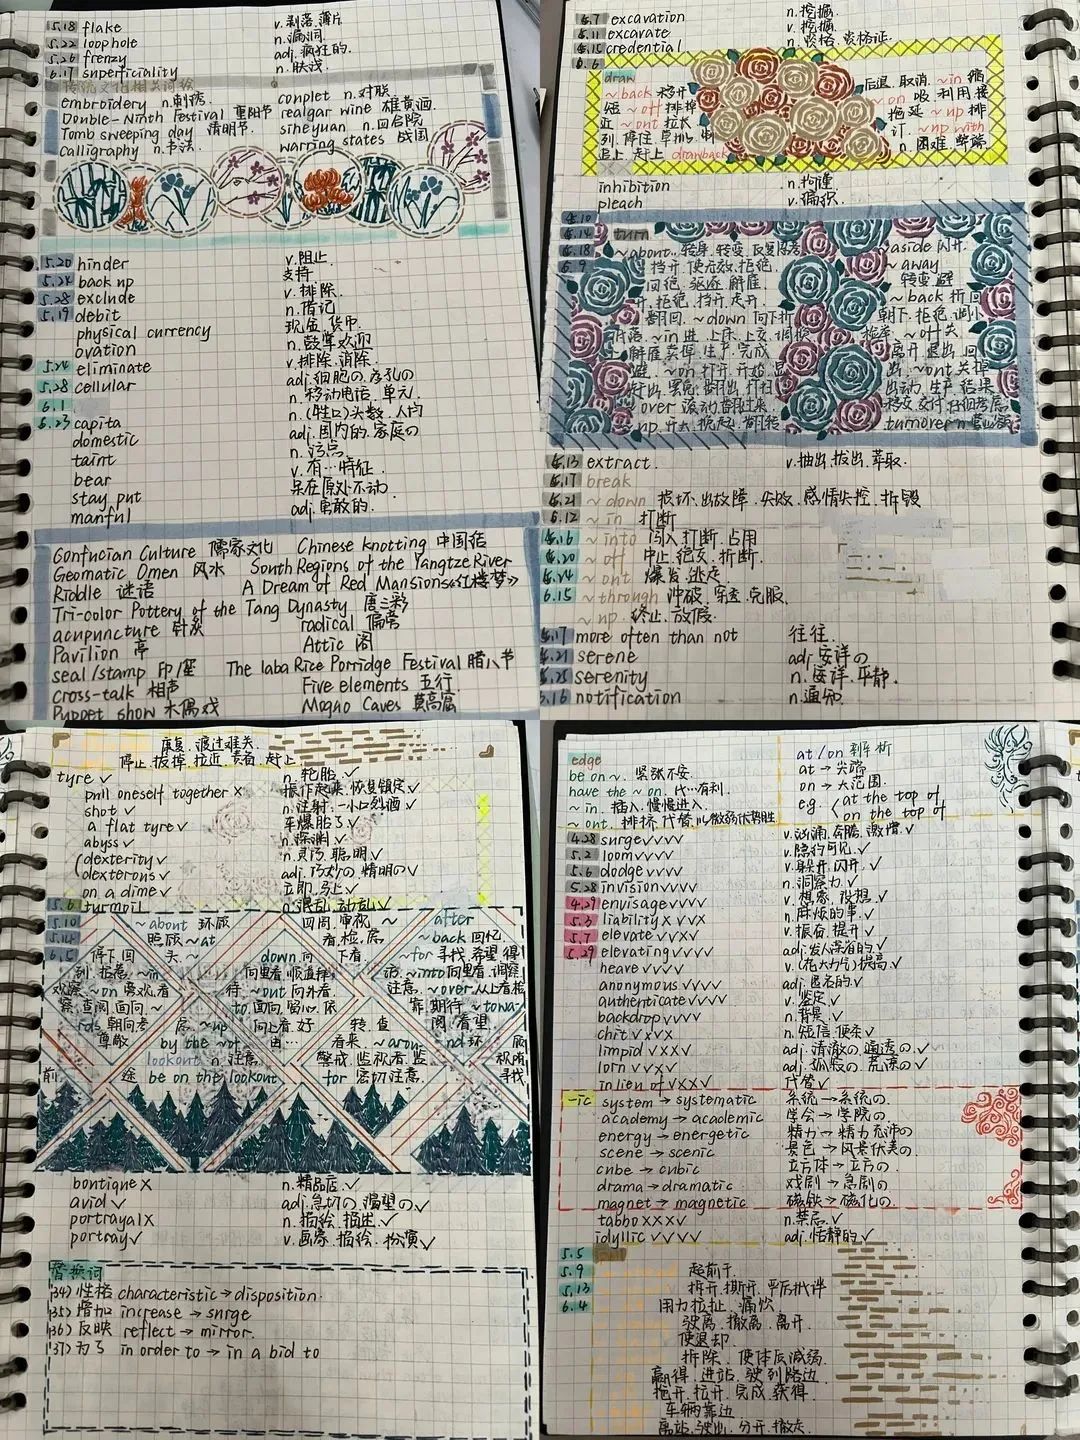 5.18 flake v.剥落.薄片
5.22 loophole n.漏洞.
5.26 frenzy adj.疯狂的.
6.17 superficiality n.肤浅.
传统文化相关词绘
embroidery n.刺绣. conplet n.对联
Double-Ninth Festival 重阳节 realgar wine 雄黄酒.
Tomb sweeping day 清明节. siheyuan n.四合院
calligraphy n.书法. warring states 战国
5.20 hinder v.阻止.
5.24 back up 支持
5.28 exclude v.排除.
5.19 debit n.借记
physical currency 现金.货币.
ovation n.鼓掌欢迎
5.24 eliminate v.排除.消除.
5.28 cellular adj.细胞の.多孔の
6.1 n.移动电话.单元.
6.23 capita n.(牲口)头数.人均
domestic adj.国内的.家庭の
taint n.污点
bear v.有…特征.
stay put 呆在原处不动.
manful adj.勇敢的.
Confucian Culture 儒家文化 Chinese knotting 中国结
Geomatic Omen 风水 South Regions of the Yangtze River
Riddle 谜语 A Dream of Red Mansions《红楼梦》
Tri-color Pottery of the Tang Dynasty 唐三彩
acupuncture 针灸 radical 偏旁
Pavilion 亭 Attic 阁
seal/stamp 印/ The laba Rice Porridge Festival 腊八节
cross-talk 相声 Five elements 五行
Puppet show 木偶戏 Mogao Caves 莫高窟
5.7 excavation n.挖掘.
5.11 excavate v.挖掘.
5.15 credential n.资格.资格证.
6.6
draw 后退.取消.~in 缩
~back 移开 ~on 吸.利用.接
短 ~off 排掉 拖延 ~up 排
近 ~out 拉长 订. ~up with
列.停住.草拟. n.困难.弊端
追上.赶上 drawback
inhibition n.拘谨
pleach v.编织.
5.10
5.14 turn
5.18 ~about. 转身.转变.反复思考 ~aside 闪开.
6.9 挡开.使无效.拒绝. ~away
回绝.驱逐.解雇 转变.避
开.拒绝.挡开.走开 ~back 折回
翻回. ~down 向下折 朝下.拒绝.调小
~in 进.上床.上交.调换 ~off 关.
解雇.卖掉.生产.完成 离开.退出.回
避. ~on 打开.开始 ~out 关掉
好出.罢免.翻出.打扫 出动.生产.结果
~over 滚动.翻过来 移交.交付.仔细考虑
~up turnover n.营业额
5.13 extract. v.抽出.拔出.萃取.
5.17 break
5.21 ~down 损坏.出故障.失败.感情失控.拆毁
6.12 ~in 打断
5.16 ~into 闯入.打断.占用
5.20 ~off 中止.绝交.折断.
5.24 ~out 爆发.逃走.
6.15 ~through 冲破.穿透.克服.
~up. 终止.放假.
5.17 more often than not 往往.
5.21 serene adj.安详の
5.25 serenity n.安详.平静.
6.16 notification n.通知.
康复.渡过难关.
停止.拔掉.拉近.责备.赶上.
tyre ✓ n.轮胎.✓
pull oneself together × 振作起来.恢复镇定✓
shot ✓ n.注射.一小口烈酒✓
a flat tyre ✓ 车爆胎了✓
abyss ✓ n.深渊✓
(dexterity ✓ n.灵巧.聪明✓
dexterous ✓ adj.巧妙の.精明の✓
on a dime ✓ 立即.马上✓
5.6 turmoil n.混乱.动乱✓
5.10 ~about 环顾 四周.审视 ~ after
5.14 照顾 ~at 看.检.房 ~back 回忆
6.5 停下回 头~ down 向 下看. ~for 寻找.希望得
到.拒藐. ~in 向里看.顺道拜 访. ~into 向里看.调察
观察 ~on 旁观.看 待. ~out 向外看. 注意. ~over 从上看检
察.查阅.面向~ to 面向.留心.依 靠.期待. ~towa-
rds 朝向考 虑. ~up 向上看.好 转.查 阅.看望
尊敬 by the ~of 由… 看来. ~arou nd 环 顾
lookout n.注意. 警戒.监视者.监 视所
前 途 be on the lookout for 密切注意. 寻找.
boutique × n.精品店.✓
avid ✓ adj.急切の.渴望の✓
portrayal × n.描绘.描述.✓
portray ✓ v.画家.描绘.扮演✓
替换词
(34)性格 characteristic→disposition.
(35)增加 increase→surge
(36)反映 reflect→mirror.
(37)为了 in order to→in a bid to
edge at/on 剖析
be on ~. 紧张不安. at→尖端
have the ~on. 比…有利. on→大范围.
~in. 插入.慢慢进入. eg. at the top of
~out. 排挤.代替.以微弱优势胜 on the top of
4.28 surge✓✓✓✓ v.汹涌.奔腾.激增✓
5.2 loom✓✓✓✓ v.隐约可见.✓
5.6 dodge✓✓✓✓ v.躲开.闪开.✓
5.28 invision✓✓✓✓ n.洞察力.✓
4.29 envisage✓✓✓✓ v.想象.设想.✓
5.3 liability×✓✓× n.麻烦的事.✓
5.7 elevate✓✓×✓ v.振奋.提升✓
5.29 elevating✓✓✓✓ adj.发人深省的✓
heave✓✓✓✓ v.(花大力气)提高✓
anonymous✓✓✓✓ adj.匿名的✓
authenticate✓✓✓✓ v.鉴定✓
backdrop✓✓✓✓ n.背景✓
chit✓×✓× n.短信.便条✓
limpid✓××✓ adj.清澈の.通透の.✓
lorn✓××✓ adj.孤寂の.荒凉の✓
in lieu of✓××✓ 代替✓
-ic system→systematic 系统→系统の.
academy→academic 学会→学院の
energy→energetic 精力→精力充沛の
scene→scenic 景色→风景优美の.
cube→cubic 立方体→立方の.
drama→dramatic 戏剧→急剧の
magnet→magnetic 磁铁→磁化の.
tabbo×××✓ n.禁忌.✓
idyllic✓✓✓✓ adj.恬静的✓
5.5
5.9 起前于.
5.13 拆开.撕开.严厉批评
6.4 用力拉扯.痛饮.
驶离.撤离.离开.
使退却.
拆除.使体质减弱.
赢得.进站.驶到路边
拖开.拉开.完成.获得.
车辆靠边
离站.驶出.分开.撤走.